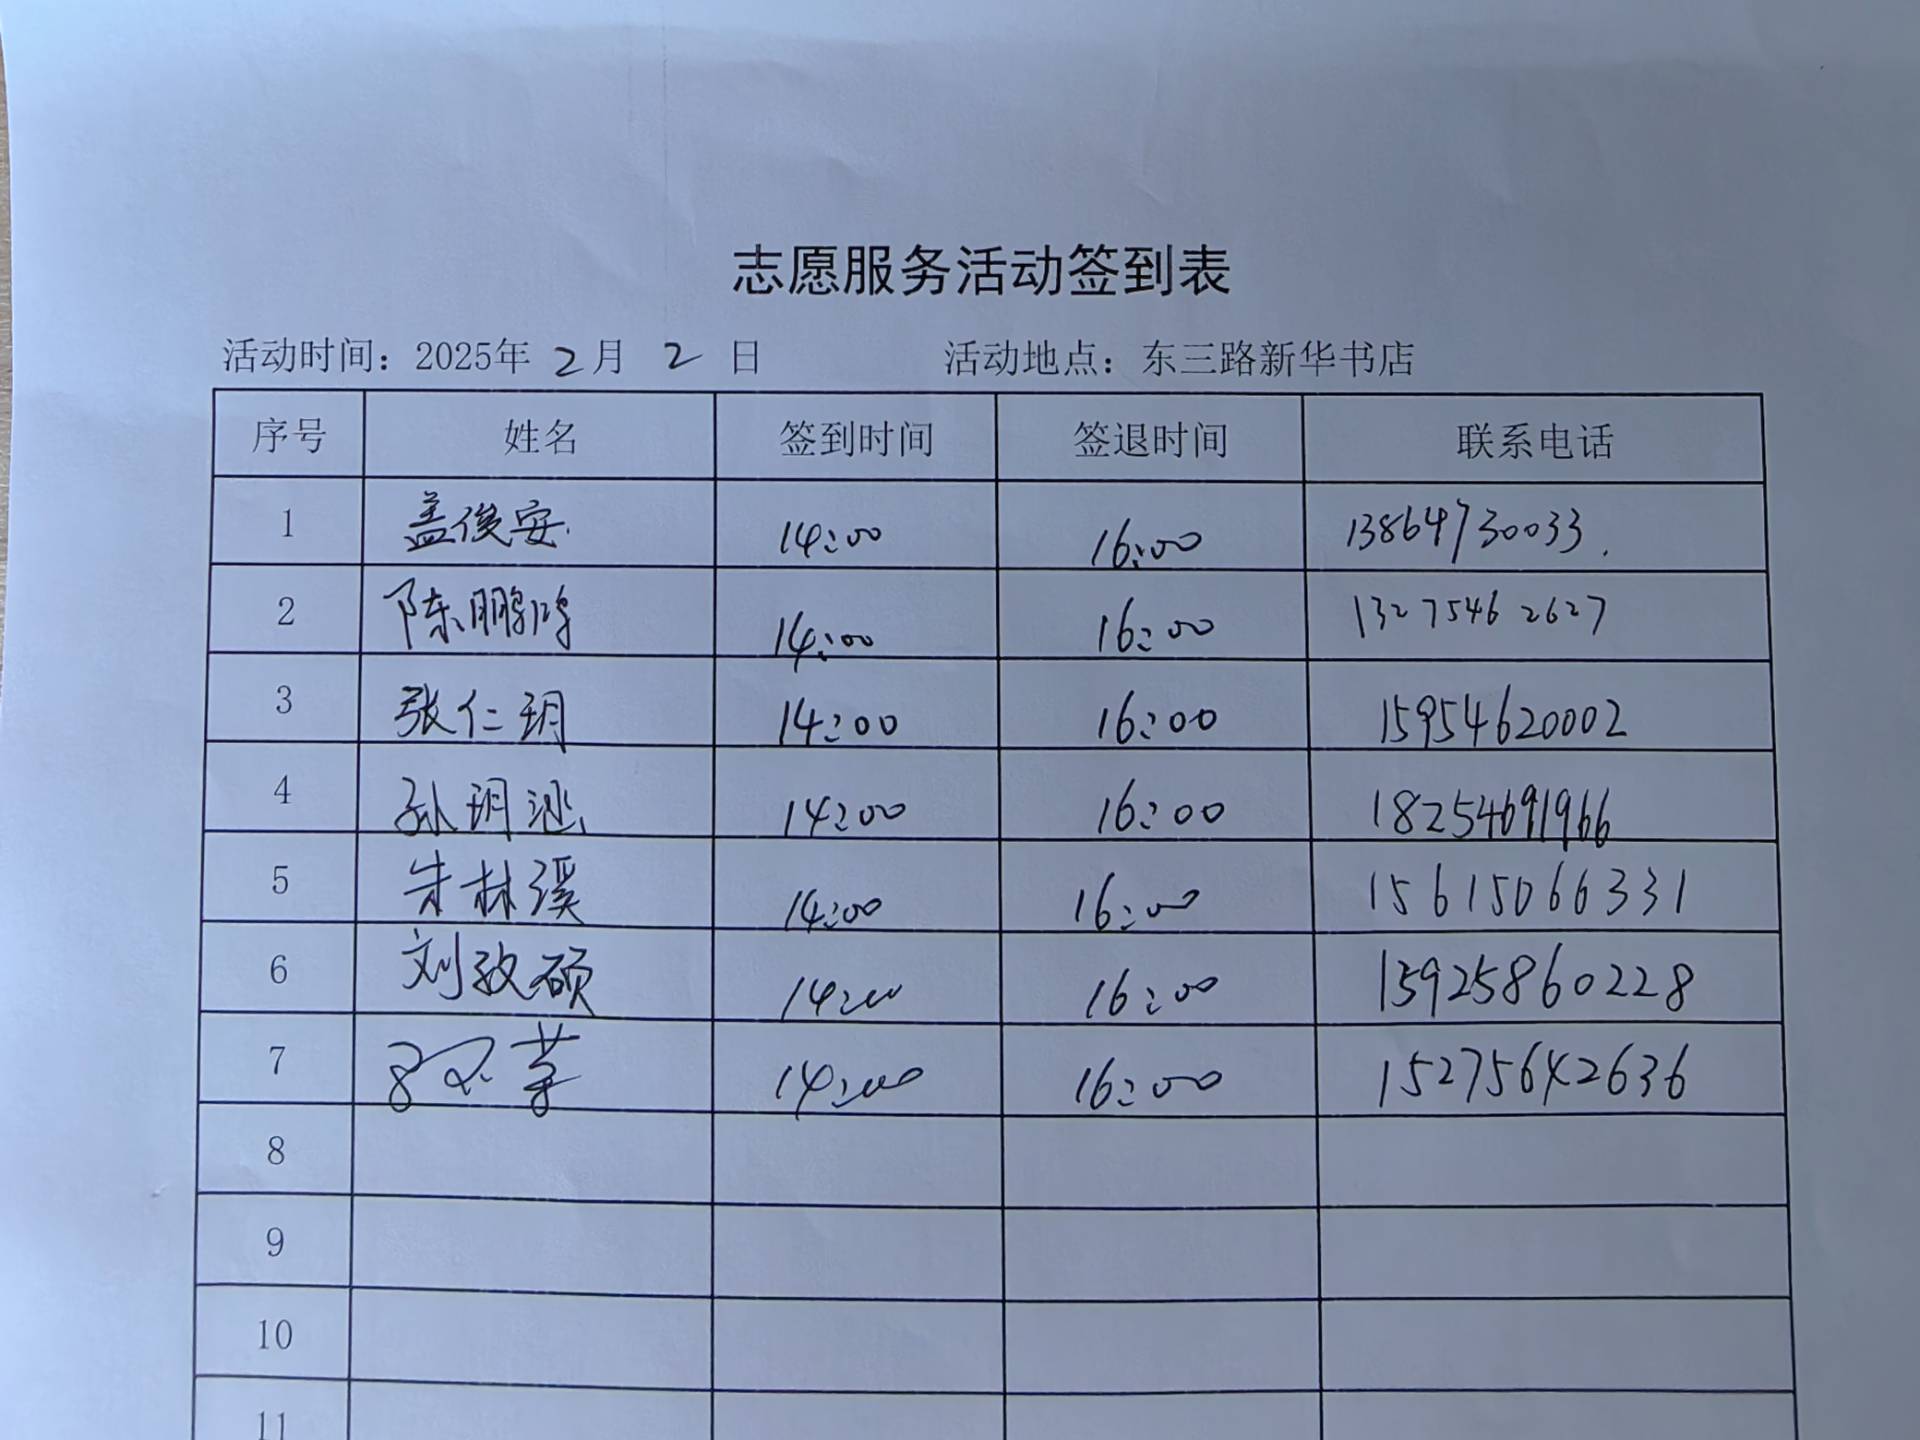 志愿服务活动签到表
活动时间：2025年 2月 2 日 活动地点：东三路新华书店
序号 姓名 签到时间 签退时间 联系电话
1 盖俊安 14:00 16:00 13864730033
2 陈鹏鸿 14:00 16:00 13275462627
3 张仁玥 14:00 16:00 15954620002
4 孙玥 14:00 16:00 18254691966
5 朱林溪 14:00 16:00 15615066331
6 刘孜硕 14:00 16:00 15925860228
7 14:00 16:00 15275642636
8
9
10
11